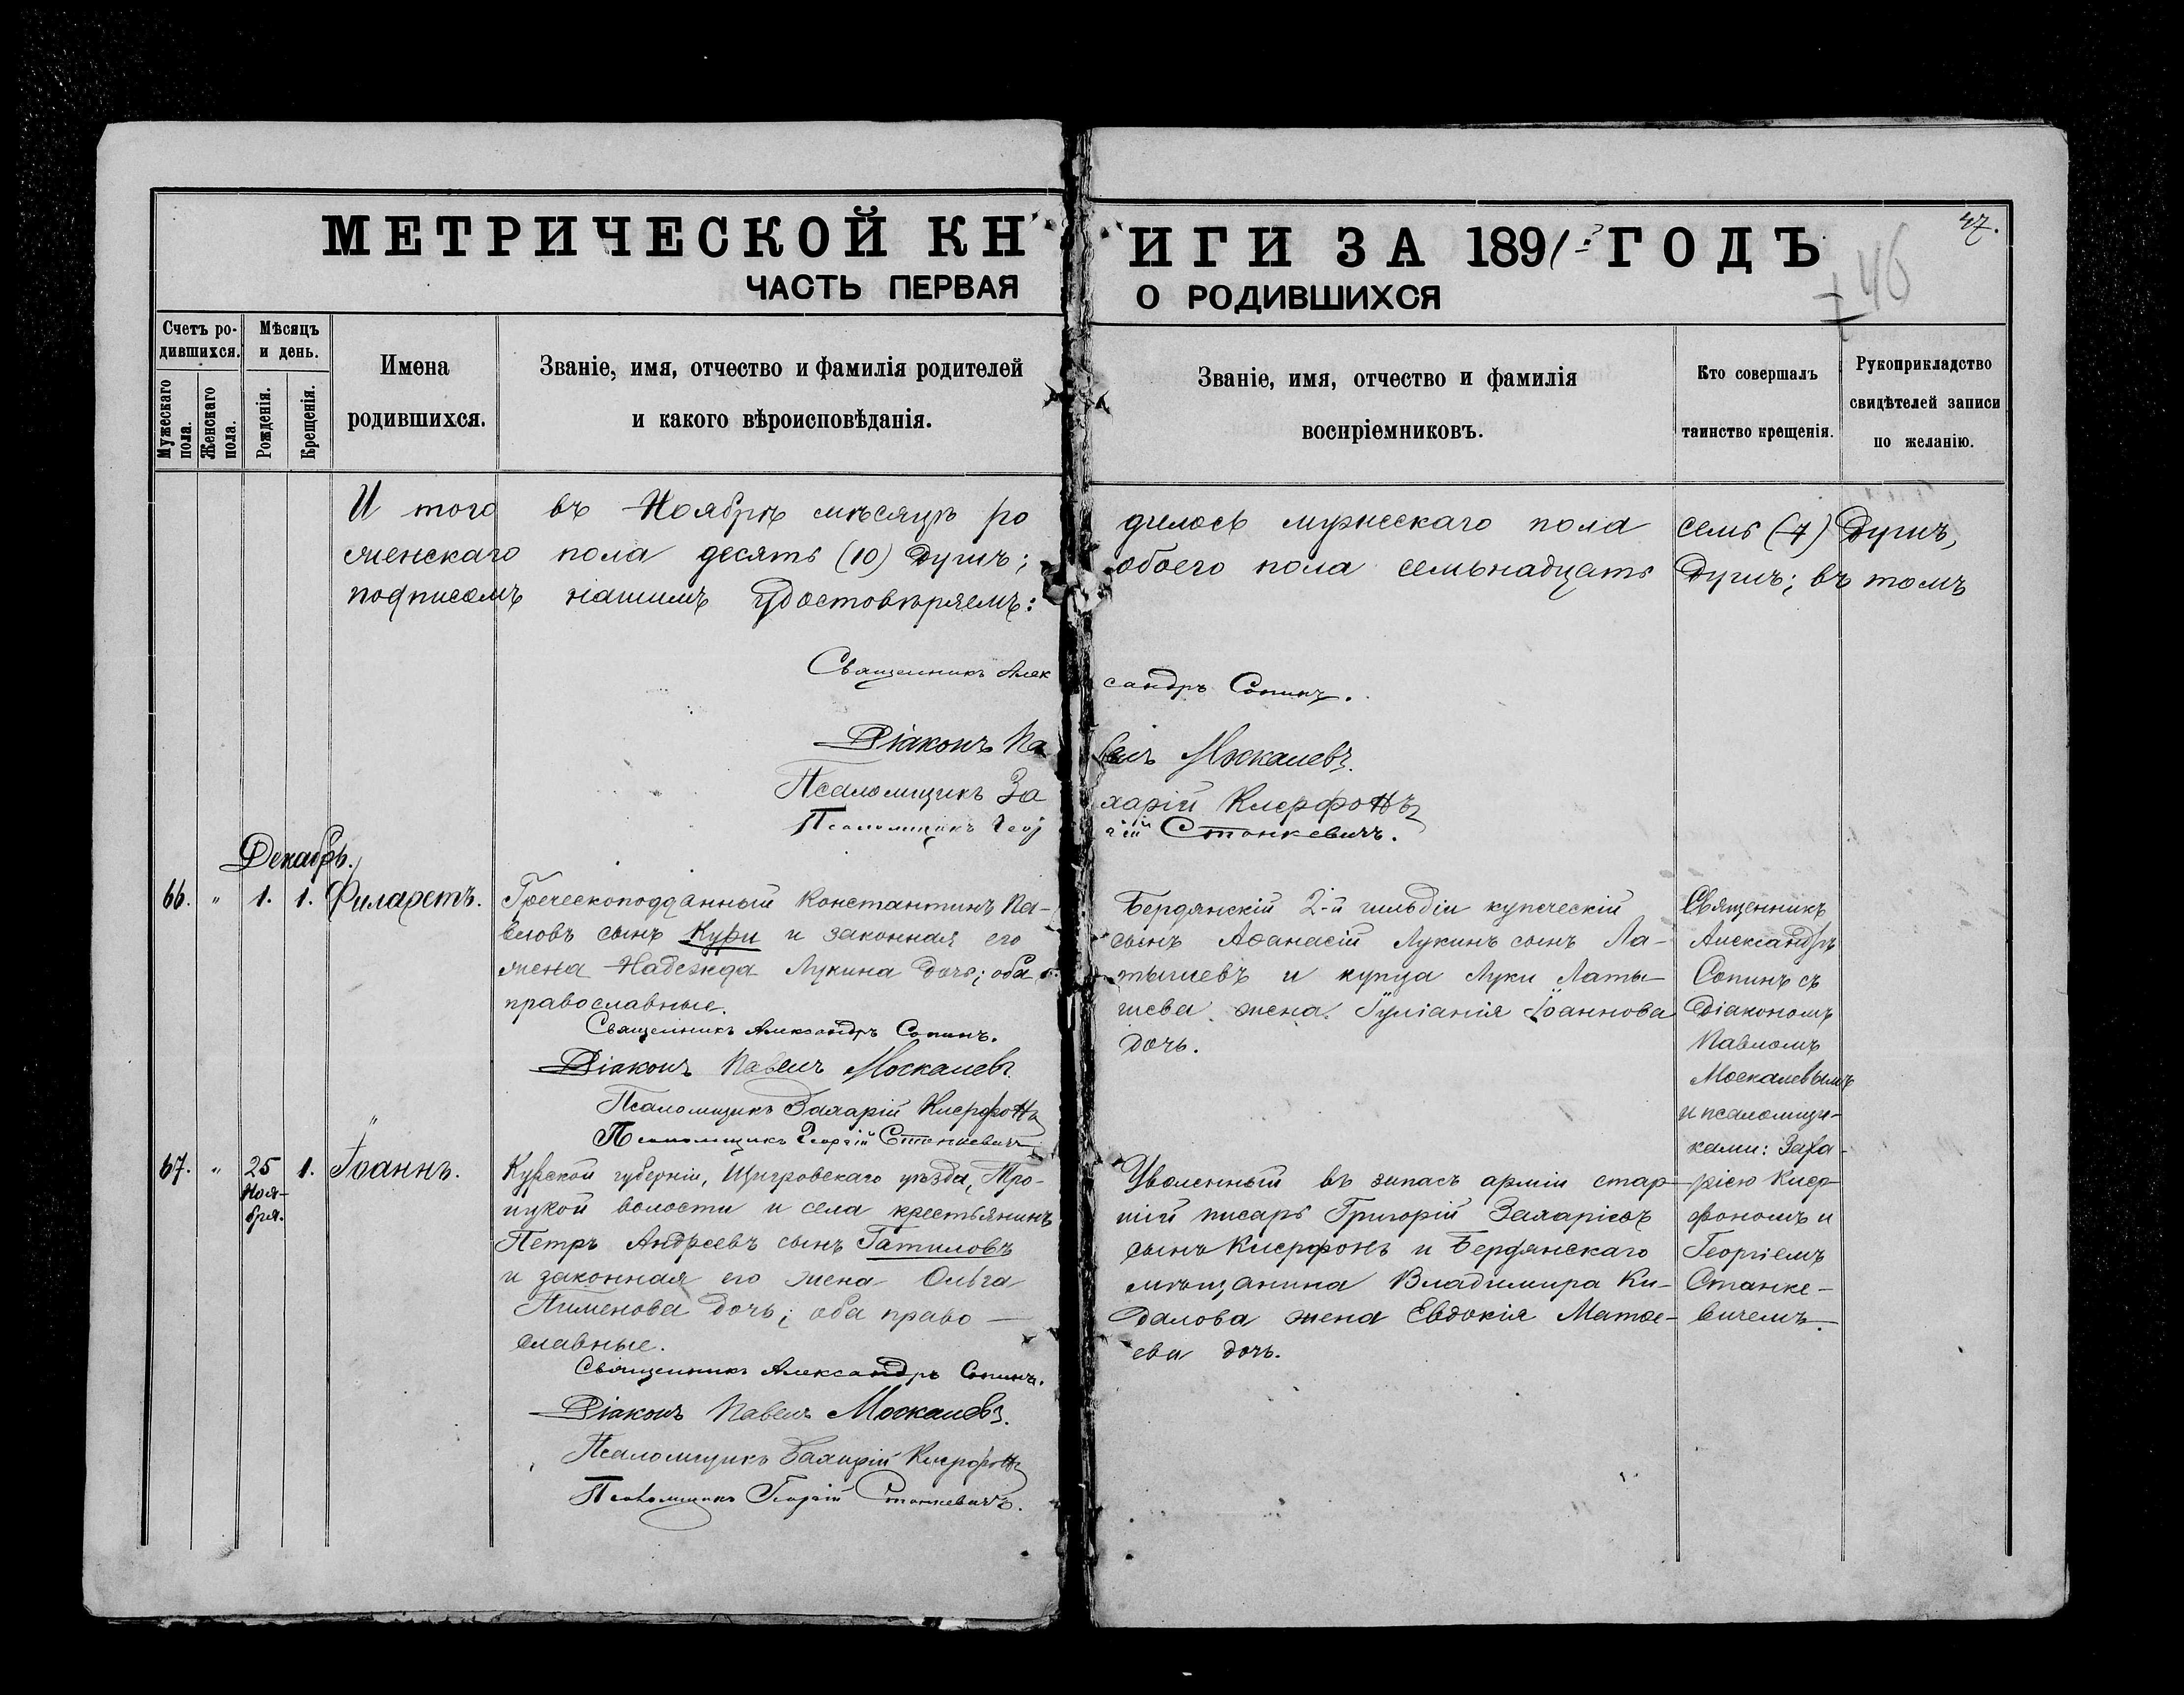 МЕТРИЧЕСКОЙ КН ИГИ ЗА 1891 ГОДЪ
47.
46
ЧАСТЬ ПЕРВАЯ О РОДИВШИХСЯ
Счетъ ро-
дившихся.
Мужескаго пола.
Женскаго пола.
Мѣсяцъ
и день.
Рожденія.
Крещенія.
Имена
родившихся.
Званіе, имя, отчество и фамилія родителей
и какого вѣроисповѣданія.
Званіе, имя, отчество и фамилія
воспріемниковъ.
Кто совершалъ
таинство крещенія.
Рукоприкладство
свидѣтелей записи
по желанію.
И того въ Ноябрѣ мѣсяцѣ ро дилось мужескаго пола семь (7) Душъ,
женскаго пола десять (10) Душъ; обоего пола семьнадцать Душъ; въ томъ
подписомъ нашимъ удостовѣряемъ:
Священникъ Алек сандръ Сопинъ.
Діаконъ Па велъ Москалевъ.
Псаломщикъ За харій Ксерфонъ
Псаломщикъ Геор гій Станкевичъ.
Декабрь.
66. " 1. 1. Филаретъ.
Греческоподданный Константинъ Па-
веловъ сынъ Кури и законная его
жена Надежда Лукина дочь; оба
православные.
Священникъ Александръ Сопинъ.
Діаконъ Павелъ Москалевъ.
Псаломщикъ Захарій Ксерфонъ
Псаломщикъ Георгій Станкевичъ
Бердянскій 2-й гильдіи купеческій
сынъ Аѳанасій Лукинъ сынъ Ла-
тышевъ и купца Луки Латы-
шева жена Іуліанія Іоаннова
дочь.
Священникъ
Александръ
Сопинъ съ
Діакономъ
Павломъ
Москалевымъ
и псаломщи-
ками: Заха-
ріею Ксер-
фономъ и
Георгіемъ
Станке-
вичемъ.
67. " 25 Ноя-
бря. 1. Іоаннъ.
Курской губерніи, Щигровскаго уѣзда, Тро-
ицкой волости и села крестьянинъ
Петръ Андреевъ сынъ Гатиловъ
и законная его жена Ольга
Пименова дочь; оба право-
славные.
Священникъ Александръ Сопинъ.
Діаконъ Павелъ Москалевъ.
Псаломщикъ Захарій Ксерфонъ
Псаломщикъ Георгій Станкевичъ.
Уволенный въ запасъ арміи стар-
шій писарь Григорій Захаріевъ
сынъ Ксерфонъ и Бердянскаго
мѣщанина Владимира Ки-
далова жена Евдокія Матѳе-
ева дочь.